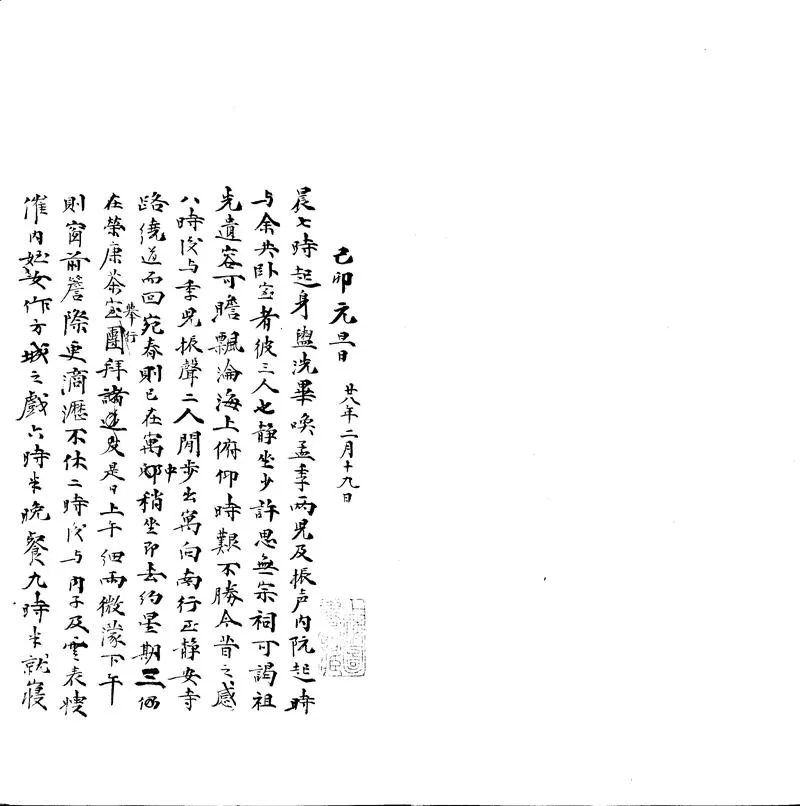 己卯元旦日 廿八年二月十九日
晨七時起身盥洗畢喚孟季兩児及振声内阮起時
与余共卧室者彼三人也静坐少許思無宗祠可謁祖
先遺容可瞻飄淪海上俯仰時艱不勝今昔之感
八時後与季児振聲二人閒步出寓向南行至静安寺
路繞道而回宛春則已在寓中稍坐即去約星期三仍
在榮康茶室舉行團拜諸及是日上午細雨微濛下午
則窗前簷際更滴瀝不休二時後与内子及雲表嫂
催内姪女作方城之戲六時半晚餐九時半就寢